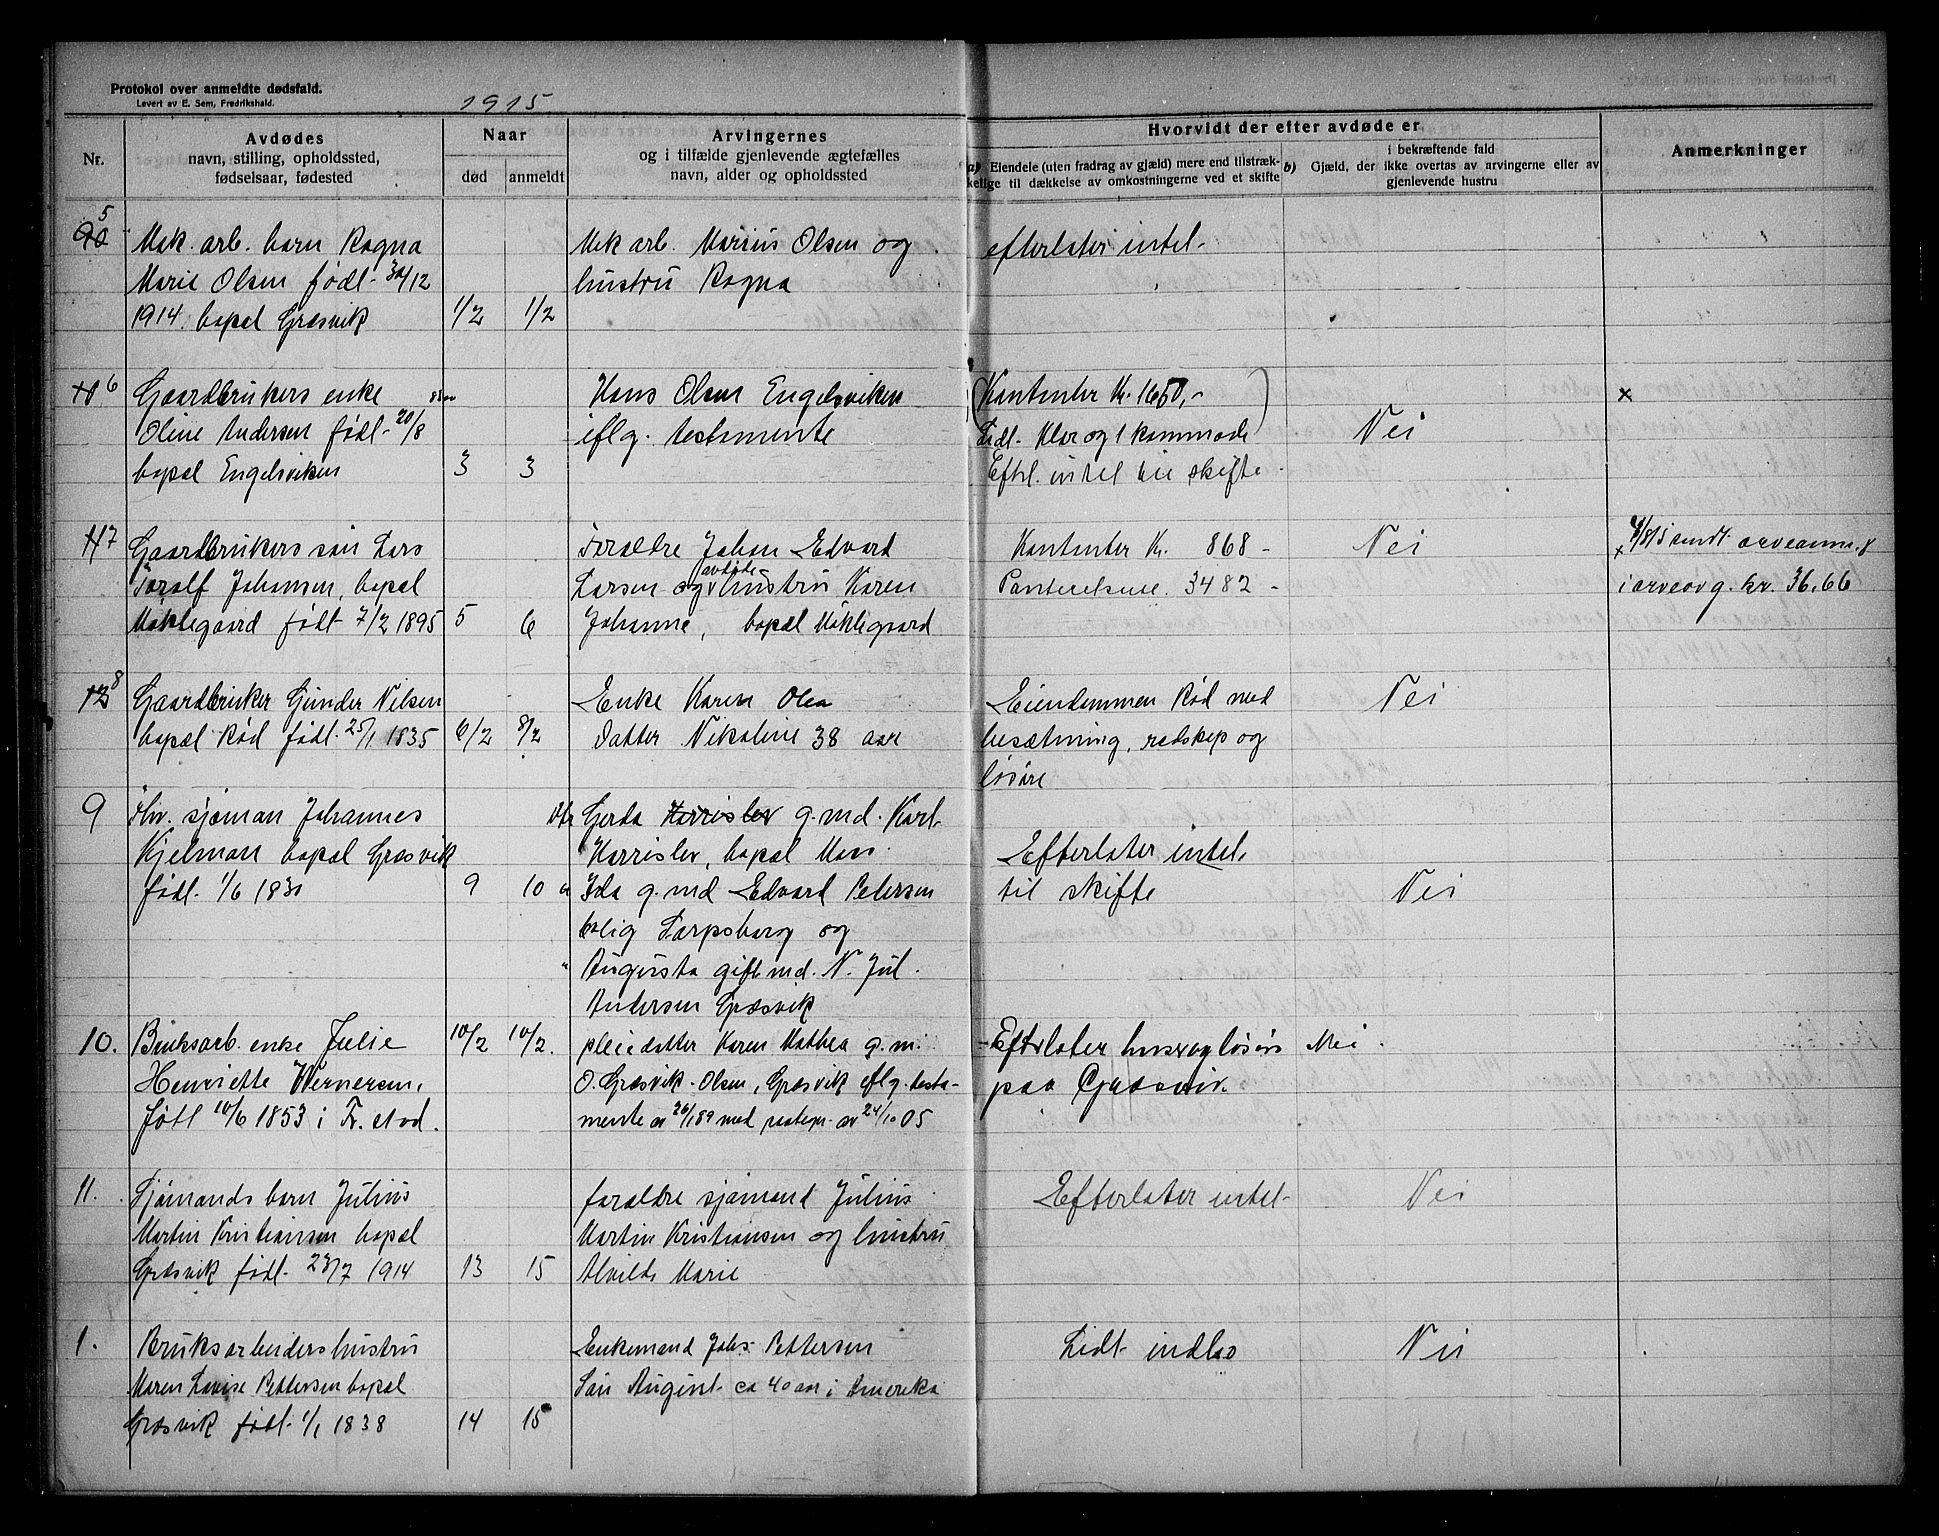 Protokol over anmeldte dødsfald.
Levert av E. Sem, Fredrikshald.
1915
Nr.
Avdødes
navn, stilling, opholdssted,
fødselsaar, fødested
Naar
død
anmeldt
Arvingernes
og i tilfælde gjenlevende ægtefælles
navn, alder og opholdssted
Hvorvidt der efter avdøde er
a) Eiendele (uten fradrag av gjæld) mere end tilstræk-
kelige til dækkelse av omkostningerne ved et skifte
b) Gjæld, der
i bekræftende fald
ikke overtas av arvingerne eller av
gjenlevende hustru
Anmerkninger
5
Mek. arb. barn Ragna
Marie Olsen født 30/12
1914. bopæl Græsvik
1/2
1/2
Mek arb. Marius Olsen og
hustru Ragna
efterlater intet
6
Gaardbrukers enke
Oline Andersen født 20/8
bopæl Engelsviken
3
3
Hans Olsen Engelsviken
iflg. testamente
Kontanter Kr. 1650,-
Lidt klær og 1 kommode
Efterl. intet til skifte
Nei
x
7
Gaardbrukers søn Lars
Toralf Johansen, bopæl
Møklegaard født 7/2 1895
5
6
Forældre Johan Edvard
Larsen og avdøde hustru Karen
Johanne, bopæl Møklegaard
Kontanter Kr. 868 -
Panteretsu. 3482 -
Nei
x 4/8 15 sendt arveanm. &
i arveavg. kr. 36,66
8
Gaardbruker Gunder Nilsen
bopæl Rød født 25/1 1835
6/2
8/2
Enke Karen Olea
Datter Nikoline 38 aar
Eiendommen Rød med
besætning, redskap og
løsøre
Nei
9
Fhv. sjøman Johannes
Kjelman bopæl Græsvik
født 1/6 1830
9
10
Dtr Gerda Harrislev g. md. Karl
Harrislev, bopæl Moss
" Ida g. md Edvard Petersen
bolig Sarpsborg og
" Augusta gift md. N. Jul.
Andersen Græsvik
Efterlater intet
til skifte
Nei
10.
Bruksarb. enke Julie
Henriette Wernersen,
født 10/6 1853 i Fr.stad.
10/2
10/2.
pleiedatter Karen Mathea g. m.
O. Græsvik-Olsen, Græsvik iflg. testa-
mente av 26/1 89 med paategn. av 24/10 05
Efterlater hus og løsøre
paa Græsvik.
Nei.
11.
Sjømands barn Julius
Martin Kristiansen bopæl
Græsvik født 23/7 1914
13
15
forældre sjømand Julius
Martin Kristiansen og hustru
Alvilde Marie
Efterlater intet
Nei
1.
Bruksarbeiders hustru
Maren Lovise Pettersen bopæl
Græsvik født 1/1 1838
14
15
Enkemand Johs. Pettersen
Søn August ca 40 aar i Amerika
Lidt indbo
Nei